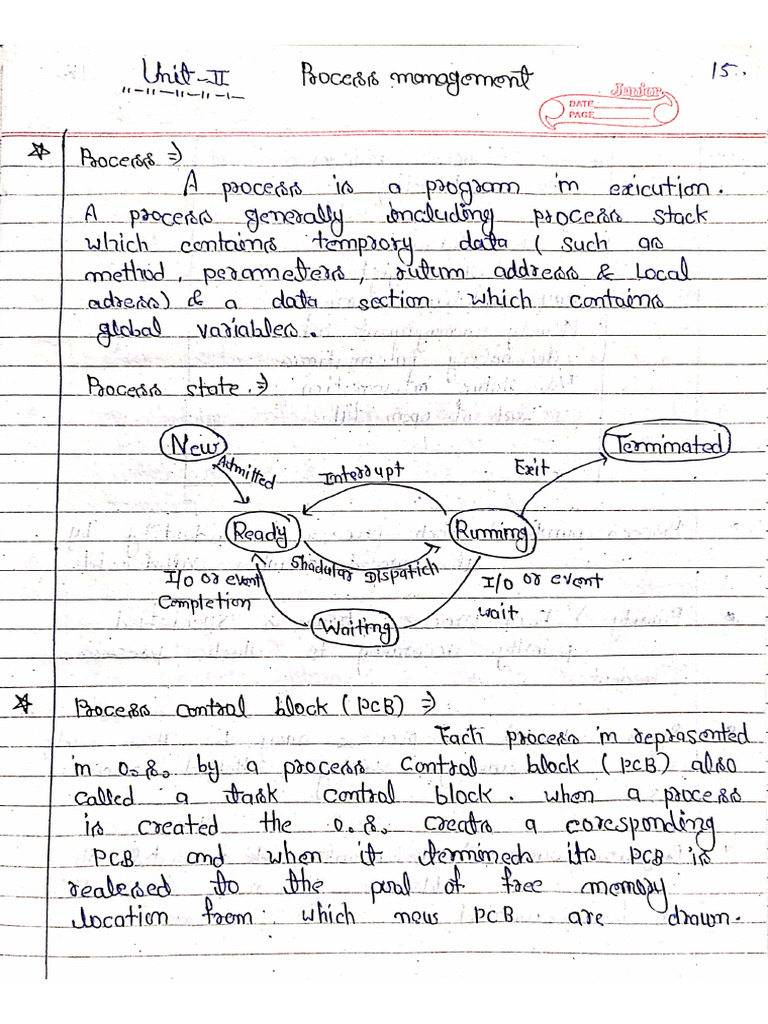 Unit-II Process management 15.
Junior
DATE
PAGE
Process ⇒
A process is a program in exicution.
A process generally including process stack
which contains temprory data (such as
method, perameters, ruturn address & local
adress) & a data section which contains
global variables.
Process state. ⇒
New
Terminated
Admitted
Interrupt
Exit
Ready
Running
Shadular Dispatich
I/O or event
Completion
I/O or event
wait
Waiting
Process control block (PCB) ⇒
Each process in reprasented
in O.S. by a process control block (PCB) also
called a task control block. when a process
is created the O.S. creats a coresponding
PCB and when it termineds its PCB is
realesed to the pool of free memory
location from which new PCB are drawn.